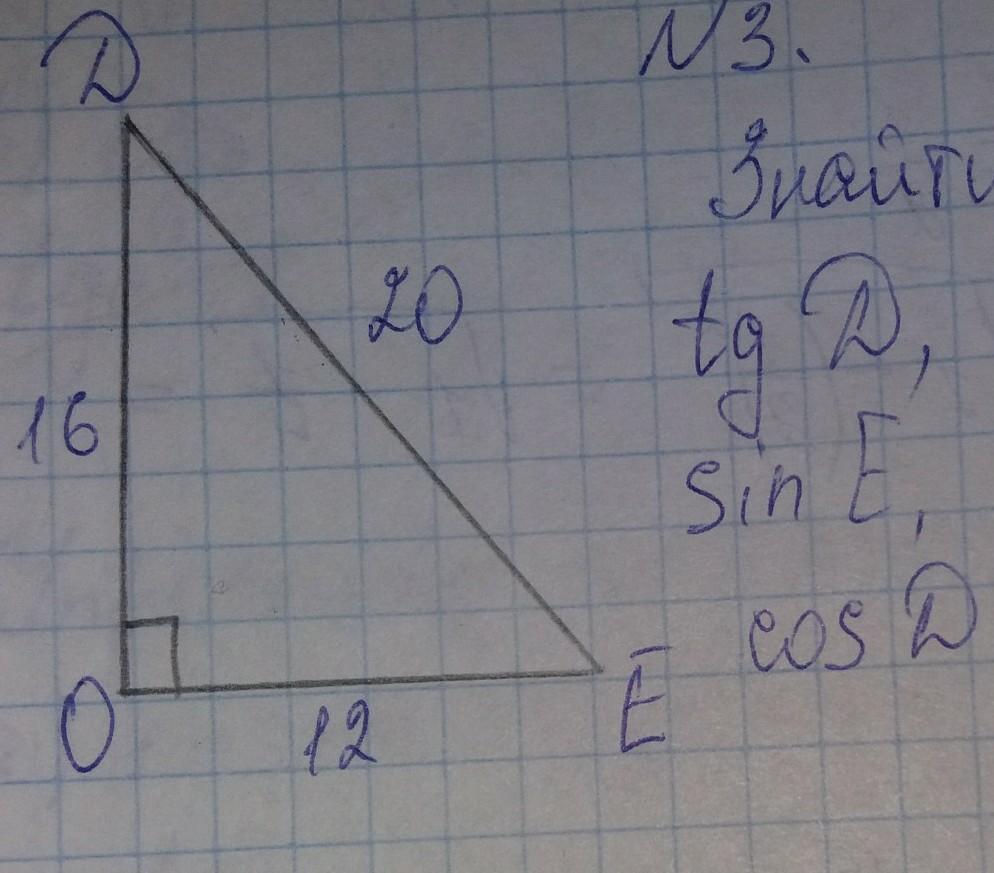 N 3.
Знайти
D
tg D,
20
16
sin E,
cos D
O
12
E